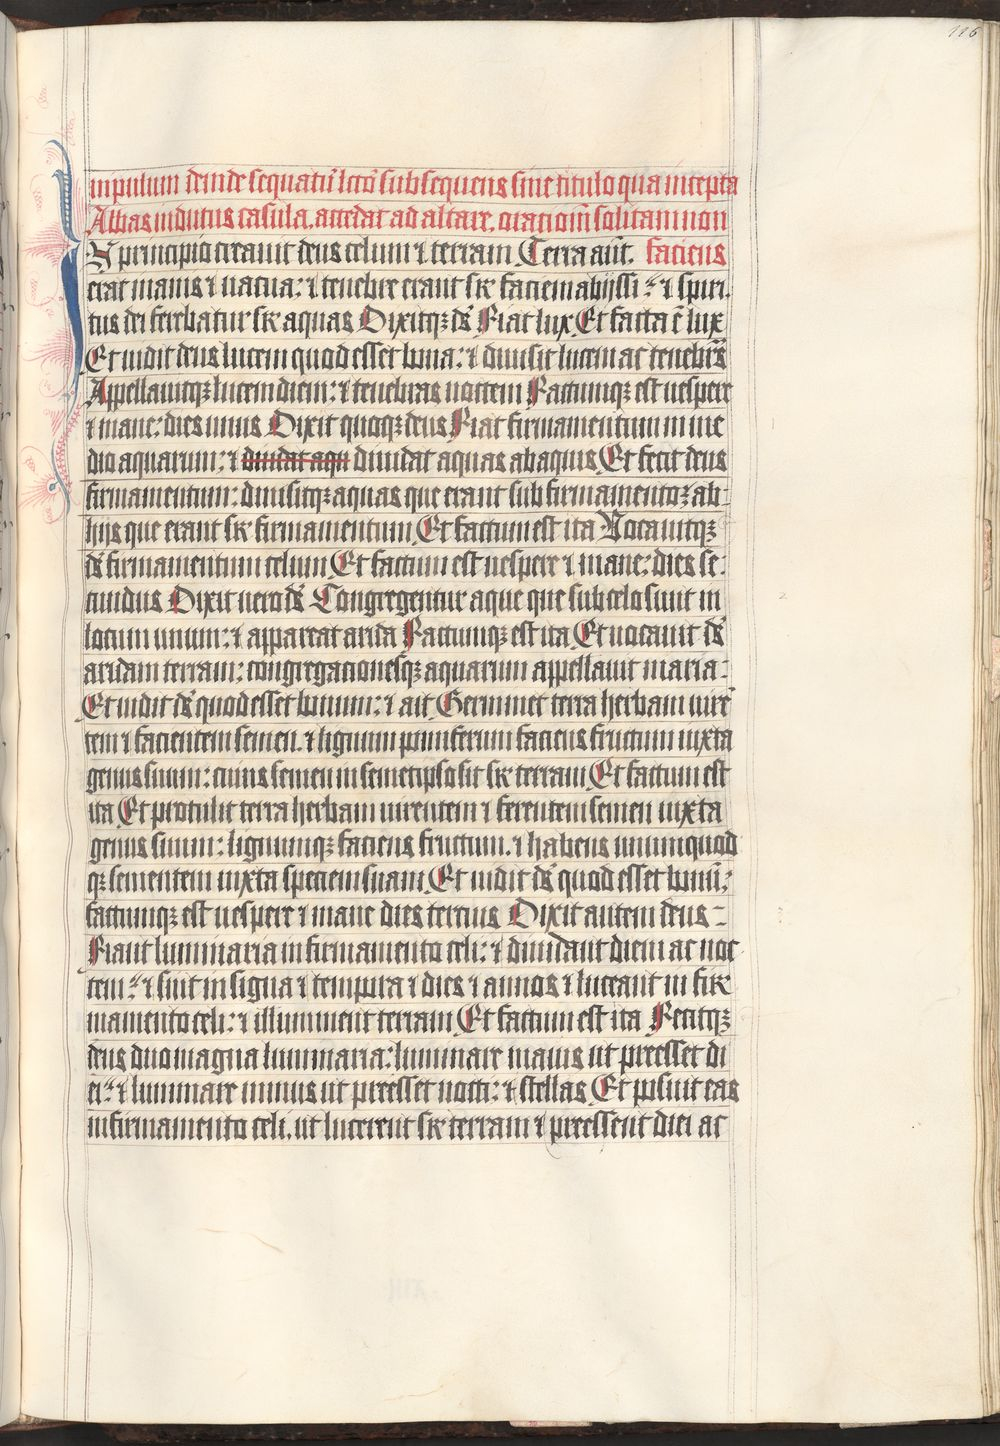 116
inpulum deinde sequatur lectio subsequens sine titulo qua incepta
Abbas indutus casula. accedat ad altare. orationem solitam non
In principio creauit deus celum ⁊ terram Terra aut̄. faciens
erat inanis ⁊ uacua: ⁊ tenebre erant sr̄ faciem abijssi: ⁊ spiri-
tus dei ferebatur sr̄ aquas Dixitqꝫ ds̄ Fiat lux Et facta ē lux
Et uidit deus lucem quod esset bona: ⁊ diuisit lucem ac tenebrs̄
Appellauitqꝫ lucem diem: ⁊ tenebras noctem Factumqꝫ est uespere
⁊ mane: dies unus Dixit quoqꝫ deus Fiat firmamentum in me
dio aquarum: ⁊ diuidat aqu diuidat aquas ab aquis Et fecit deus
firmamentum: diuisitqꝫ aquas que erant sub firmamentoꝫ ab
hijs que erant sr̄ firmamentum Et factum est ita Vocauitqꝫ
ds̄ firmamentum celum Et factum est uespere ⁊ mane: dies se-
cundus Dixit uero ds̄ Congregentur aque que sub celo sunt in
locum unum: ⁊ appareat arida Factumqꝫ est ita Et uocauit ds̄
aridam terram: congregacionesqꝫ aquarum appellauit maria:
Et uidit ds̄ quod esset bonum: ⁊ ait Germinet terra herbam uirē
tem ⁊ facientem semen. ⁊ lignum pomiferum faciens fructum iuxta
genus suum: cuius semen in semetipso sit sr̄ terram Et factum est
ita Et protulit terra herbam uirentem ⁊ ferentem semen iuxta
genus suum: lignumqꝫ faciens fructum. ⁊ habens unumquod
qꝫ sementem iuxta speciem suam Et uidit ds̄ quod esset bonū:
factumqꝫ est uespere ⁊ mane dies tercius Dixit autem deus
Fiant luminaria in firmamento celi: ⁊ diuidant diem ac noc
tem: ⁊ sint in signa ⁊ tempora ⁊ dies ⁊ annos ⁊ luceant in fir
mamento celi: ⁊ illuminent terram Et factum est ita Fecitqꝫ
deus duo magna luminaria: luminare maius ut preesset di
ei: ⁊ luminare minus ut preesset nocti: ⁊ stellas Et posuit eas
in firmamento celi. ut lucerent sr̄ terram ⁊ preessent diei ac